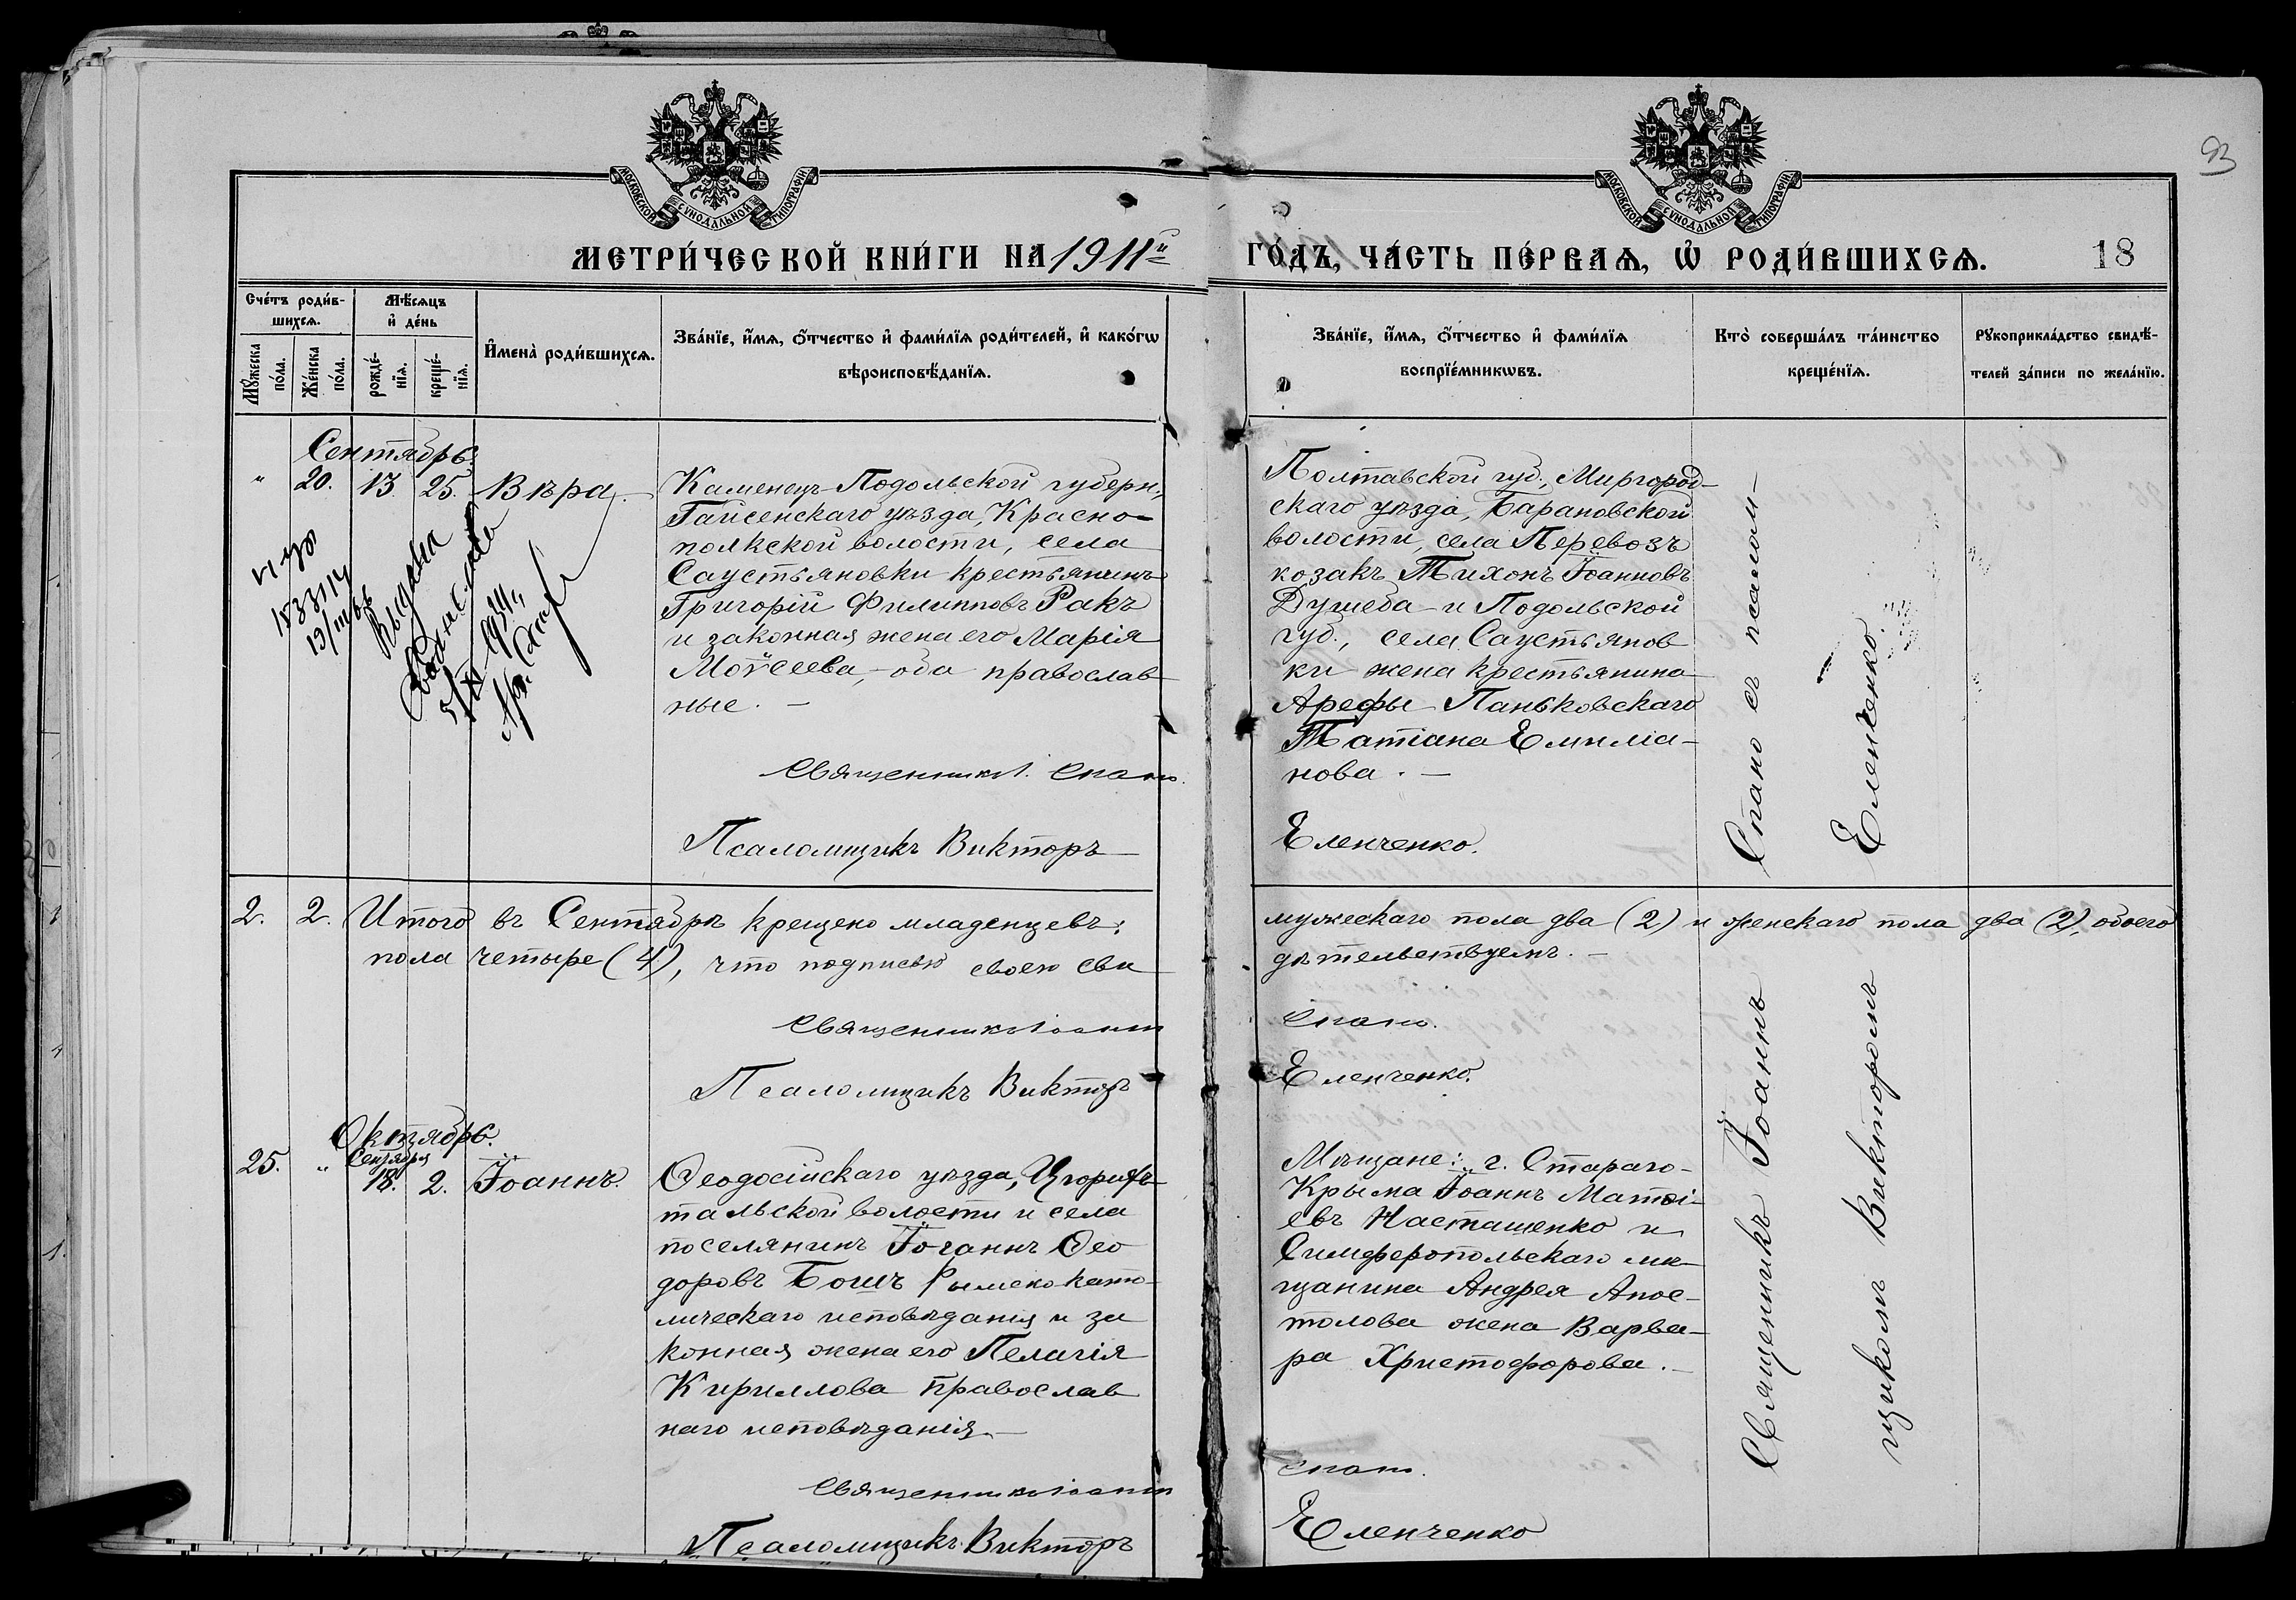 93
МОСКОВСКОЙ СУНОДАЛЬНОЙ ТИПОГРАФІИ
МОСКОВСКОЙ СУНОДАЛЬНОЙ ТИПОГРАФІИ
МЕТРИ́ЧЕСКОЙ КНИ́ГИ НА 1911й
ГО́ДЪ, ЧА́СТЬ ПЕ́РВАѦ, Ѡ РОДИ́ВШИХСѦ. 18
Сче́тъ роди́в-
шихсѧ.
Мꙋ́жеска
по́ла.
Же́нска
по́ла.
Мѣ́сѧцъ
и҆ де́нь
рожде́-
нїѧ.
креще́-
нїѧ.
И҆мена̀ роди́вшихсѧ.
Зва́нїе, и҆́мѧ, ѻ҆́тчество и҆ фами́лїѧ роди́телей, и҆ како́гѡ
вѣроисповѣ́данїѧ.
Зва́нїе, и҆́мѧ, ѻ҆́тчество и҆ фами́лїѧ
воспрїе́мникѡвъ.
Кто̀ соверша́лъ та́инство
креще́нїѧ.
Рꙋкоприкла́дство свидѣ́-
телей за́писи по жела́нїю.
Сентябрь.
" 20. 13. 25. Вѣра.
Каменецъ-Подольской губерн.,
Гайсенскаго уѣзда, Красно-
полкской волости, села
Саустьяновки крестьянинъ
Григорій Филипповъ Ракъ
и законная жена его Марія
Моѵсеева, - оба православ-
ные. -
Священникъ І. Спано.
Псаломщикъ Викторъ
Выдана
Полтавской губ., Миргород-
скаго уѣзда, Барановской
волости, села Перевозъ
козакъ Тихонъ Іоанновъ
Душеба - и Подольской
губ., села Саустьянов
ки жена крестьянина
Арефы Паньковскаго
Татіана Емиліа-
нова. -
Еленченко.
Спано съ псалом-
Еленченко.
2. 2. Итого въ Сентябрѣ крещено младенцевъ: мужескаго пола два (2) и женскаго пола два (2), обоего
пола четыре (4), что подписью своею сви дѣтельствуемъ. -
Священникъ Іоаннъ Спано.
Псаломщикъ Викторъ Еленченко.
Октябрь.
Сентября
25. " 18. 2. Іоаннъ.
Ѳеодосійскаго уѣзда, Цюрихъ-
тальской волости и села
поселянинъ Іоганнъ Ѳео
доровъ Бошъ Римско като-
лическаго исповѣданія и за
конная жена его Пелагія
Кириллова православ
наго исповѣданія. -
Священникъ Іоаннъ
Псаломщикъ Викторъ
Мѣщане: г. Стараго-
Крыма Іоаннъ Матѳі-
евъ Насташенко и
Симферопольскаго мѣ-
щанина Андрея Апос-
толова жена Варва-
ра Христофорова. -
Спано.
Еленченко
Священникъ Іоаннъ
щикомъ Викторомъ